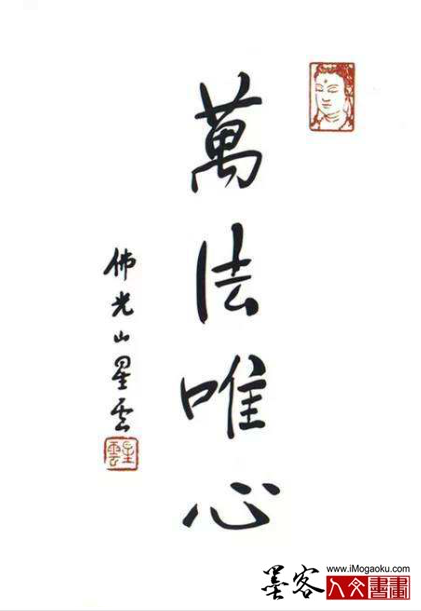 萬法唯心
佛光山星雲
星雲
www.iMogaoku.com
墨客
人文書畫